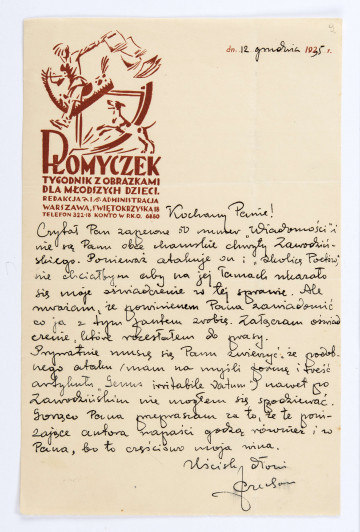 dn. 12 grudnia 1935 r.
PŁOMYCZEK
TYGODNIK Z OBRAZKAMI
DLA MŁODSZYCH DZIECI.
REDAKCJA I ADMINISTRACJA
WARSZAWA, ŚWIĘTOKRZYSKA 18
TELEFON 322-18 KONTO W P.K.O. 6880
Kochany Panie!
Czytał Pan zapewne 50 numer „Wiadomości" i
nie są Panu obce chamskie chwyty Zawodziń-
skiego. Ponieważ atakuje on i „Okolicę Poetów"
nie chciałbym aby na jej łamach ukazało
się moje oświadczenie w tej sprawie. Ale
uważam, że powinienem Pana zawiadomić
co ja z tym fantem zrobię. Załączam oświad
czenie, które rozesłałem do prasy.
Prywatnie muszę się Panu zwierzyć, że podob-
nego ataku (mam na myśli formę i treść
artykułu „Genus irritabile vatum") nawet po
Zawodzińskim nie mogłem się spodziewać.
Gorąco Pana przepraszam za to, że te poni-
żające autora napaści godzą również i w
Pana, bo to częściowo moja wina.
Uścisk dłoni